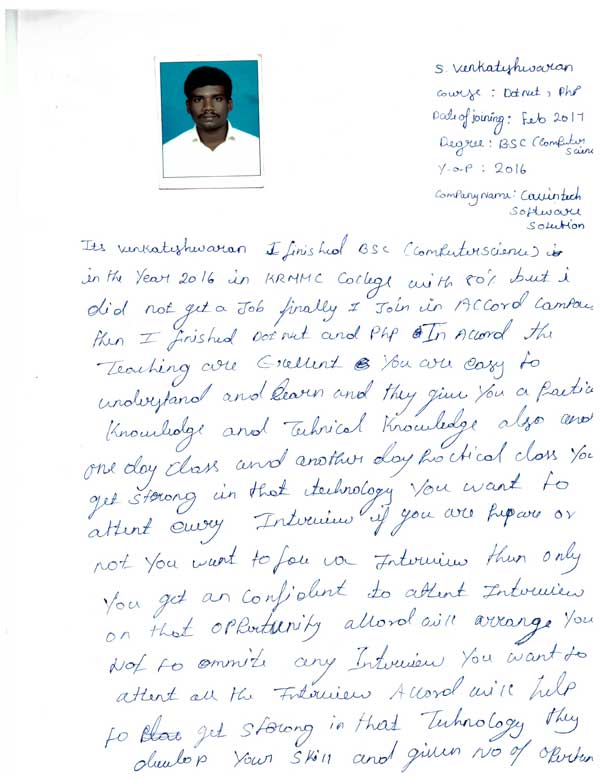 S. Venkateshwaran
Course : Dot net, PhP
Date of joining : Feb 2017
Degree : BSC (Computer
Science
Y.O.P : 2016
Company Name : Cavintech
Software
Solution
Its Venkateshwaran I finished BSC (Computerscience) is
in the Year 2016 in KRMMC College with 80% but i
did not get a Job finally I Join in Accord Campus
then I finished Dot nut and PhP In Accord the
Teaching are Exellent You are easy to
understand and learn and they give You a Practica
Knowledge and Tehnical Knowledge also and
one day class and another day Practical class You
get strong in that technology You want to
attent every Interview if you are Prepare or
not You want to face a Interview then only
You get an confident to attent Interview
on that OPPertunity allord will arrange You
Not to ommite any Interview You want to
attent all the Interview Accord will help
to get strong in that Technology they
develop Your skill and given No of opertun